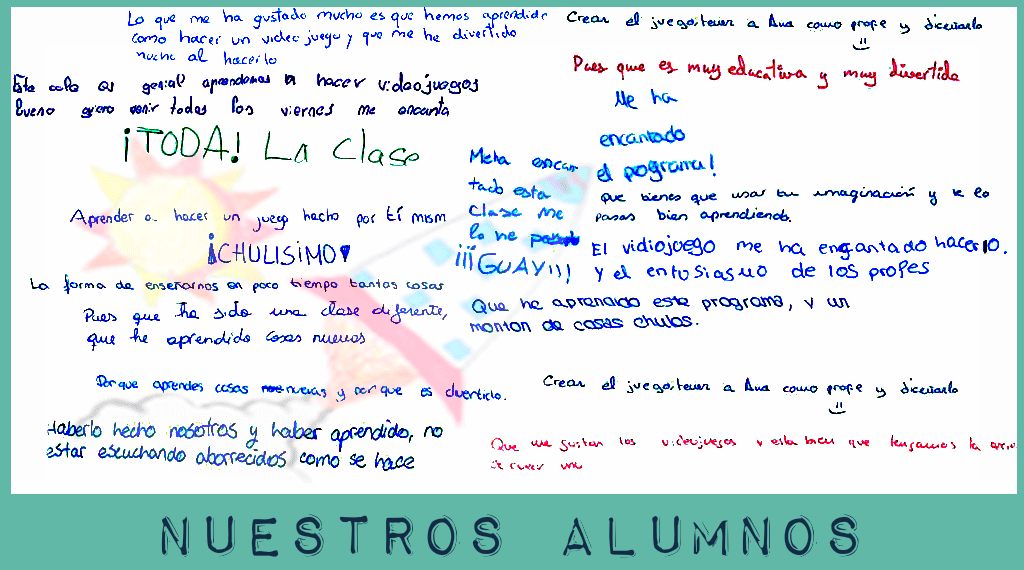 Lo que me ha gustado mucho es que hemos aprendido
como hacer un video juego y que me he divertido
mucho al hacerlo
Crear el juego, tener a Ana como profe y diseñarlo
Este cole es genial aprendemos a hacer videojuegos
bueno quiero venir todos los viernes me encanta
Pues que es muy educativa y muy divertida
Me ha
encantado
el pograma!
¡TODA! La Clase
Meha encan
tado esta
clase me
lo he pasado
¡¡¡GUAY!!!
Que tienes que usar tu imaginación y te lo
pasas bien aprendiendo.
Aprender a hacer un juego hacho por tí mism
¡CHULISIMO!
El vidiojuego me ha engantado hacerlo.
y el entusiasmo de los profes
La forma de enseñarnos en poco tiempo tantas cosas
Pues que ha sido una clase diferente,
que he aprendido cosas nuevas
Que he aprendido este programa, y un
monton de cosas chulas.
Porque aprendes cosas nuevas y porque es divertido.
Crear el juego, tener a Ana como profe y diseñarlo
Haberlo hecho nosotros y haber aprendido, no
estar escuchando aborrecidos como se hace
Que me gustan los videojuegos y esta bien que tengamos la
NUESTROS ALUMNOS